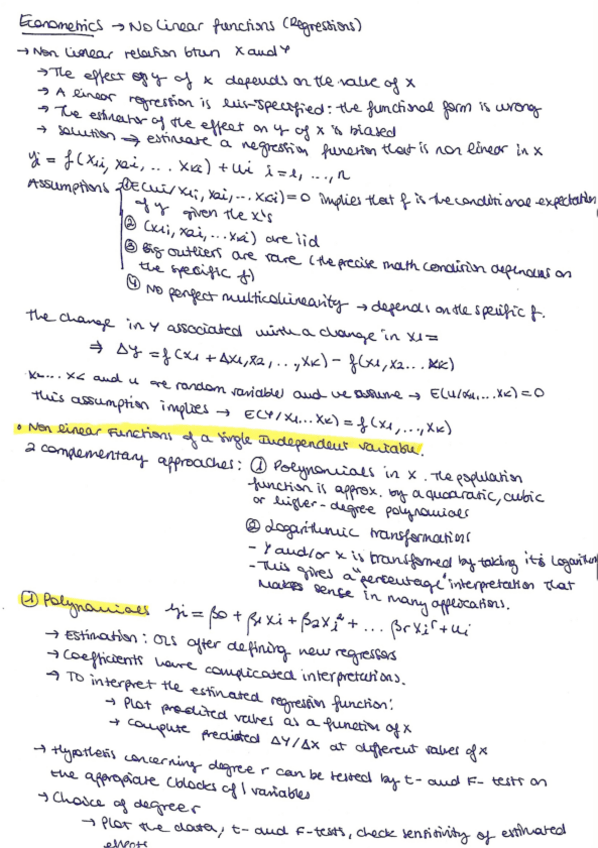 Econometrics → No linear functions (Regressions)
→ Non linear relation btwn X and Y
→ The effect on y of x depends on the value of x
→ A linear regression is mis-specified: the functional form is wrong
→ The estimator of the effect on y of x is biased
→ Solution → estimate a regression function that is non linear in x
yi = f(x1i, x2i, ... xki) + ui i=1, ..., n
Assumptions ① E(ui/x1i, x2i, ... xki)=0 implies that f is the conditional expectation
of y given the x's
② (x1i, x2i, ... xki) are iid
③ Big outliers are rare (the precise math condition depends on
the specific f)
④ No perfect multicollinearity → depends on the specific f.
The change in Y associated with a change in x1=
⇒ ΔY = f(x1 + Δx1, x2, ..., xk) - f(x1, x2 ... xk)
x1 ... xk and u are random variable and we assume → E(u/x1, ... xk)=0
this assumption implies → E(Y/x1 ... xk) = f(x1, ..., xk)
• Non linear Functions of a Single Independent Variable.
2 complementary approaches: ① Polynomials in x. The population
function is approx. by a quadratic, cubic
or higher-degree polynomials
② Logarithmic transformations
- Y and/or x is transformed by taking its logarithm
- This gives a "percentage" interpretation that
makes sense in many applications.
① Polynomials yi = β0 + β1xi + β2xi² + ... βrxiʳ + ui
→ Estimation: OLS after defining new regressors
→ Coefficients have complicated interpretations.
→ To interpret the estimated regression function:
→ Plot predicted values as a function of x
→ Compute predicted ΔY/ΔX at different values of x
→ Hypothesis concerning degree r can be tested by t- and F- tests on
the appropriate (blocks of) variables
→ Choice of degree r
→ Plot the data, t- and F-tests, check sensitivity of estimated
effects